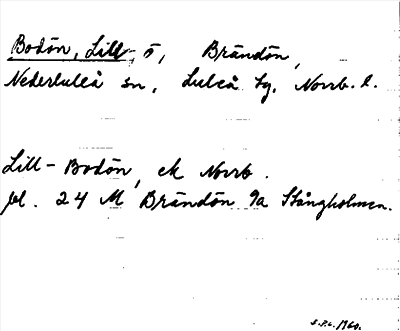 Bodön, Lill- ö, Brändön,
Nederluleå sn, Luleå tg, Norrb. l.
Lill-Bodön, ek Norrb.
bl. 24 M Brändön 9a Stångholmen.
S.P.L. 1960.